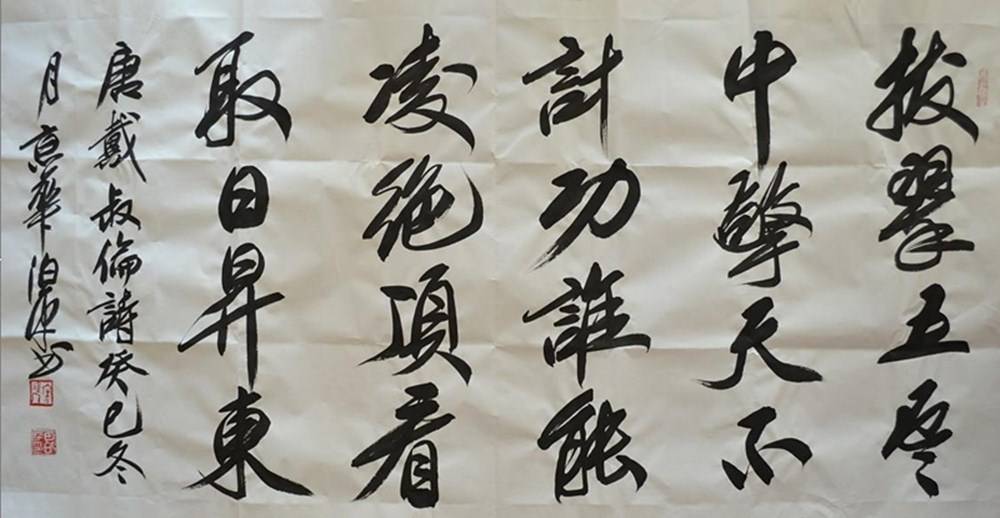 拔翠五雲
中擎天不
計功誰能
凌絶頂看
取日昇東
唐戴叔倫詩癸巳冬
月京華泊书